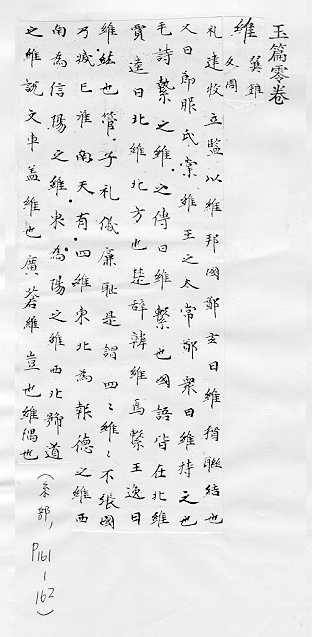 玉篇零卷
維 翼錐 反周
礼建牧立監以維邦國鄭玄曰維猶聯結也
又曰節服氏掌維王之太常鄭衆曰維持之也
毛詩縶之維之傳曰維繫也國語皆在北維
賈逵曰北維北方也楚辞幹維焉繫王逸曰
維紘也管子礼儀廉恥是謂四〻維〻不張國
乃滅已淮南天有四維東北為報德之維西
南為信陽之維東為陽之維西北號道
之維說文車盖維也廣蒼維豈也維偶也
(糸部, P161-162)